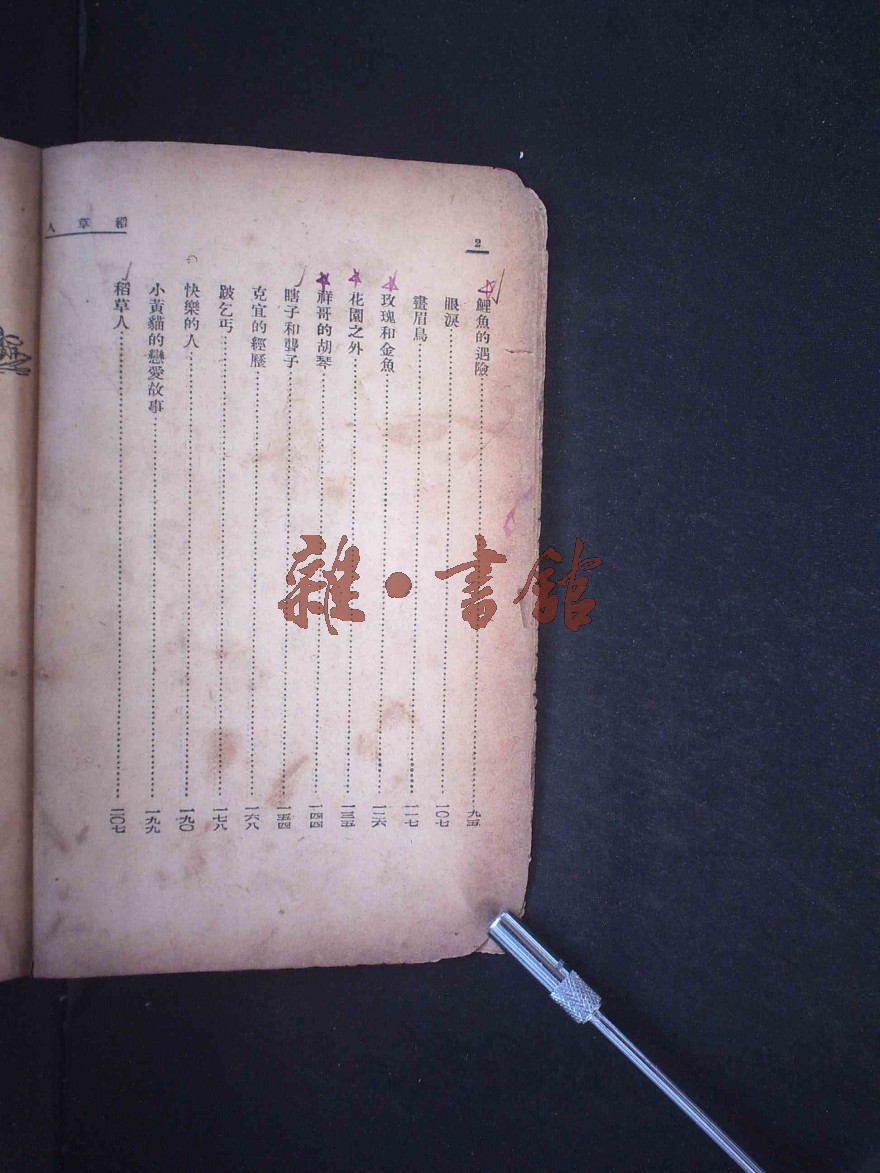 稻草人
2
鯉魚的遇險……九五
眼淚……一〇七
畫眉鳥……一一七
玫瑰和金魚……一二六
花園之外……一三五
祥哥的胡琴……一四四
瞎子和聾子……一五四
克宜的經歷……一六八
跛乞丐……一七八
快樂的人……一九〇
小黃貓的戀愛故事……一九九
稻草人……二〇七
雜·書館